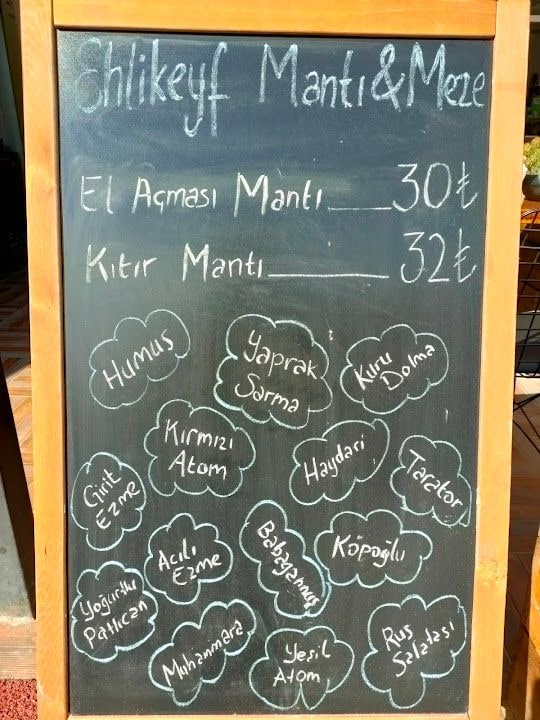 Ehlikeyf Mantı&Meze
El Açması Mantı___30₺
Kıtır Mantı______32₺
Humus
Yaprak
Sarma
Kuru
Dolma
Kırmızı
Atom
Haydari
Tarator
Girit
Ezme
Acılı
Ezme
Babagannuş
Köpoğlu
Yoğurtlu
Patlıcan
Muhammara
Yeşil
Atom
Rus
Salatası